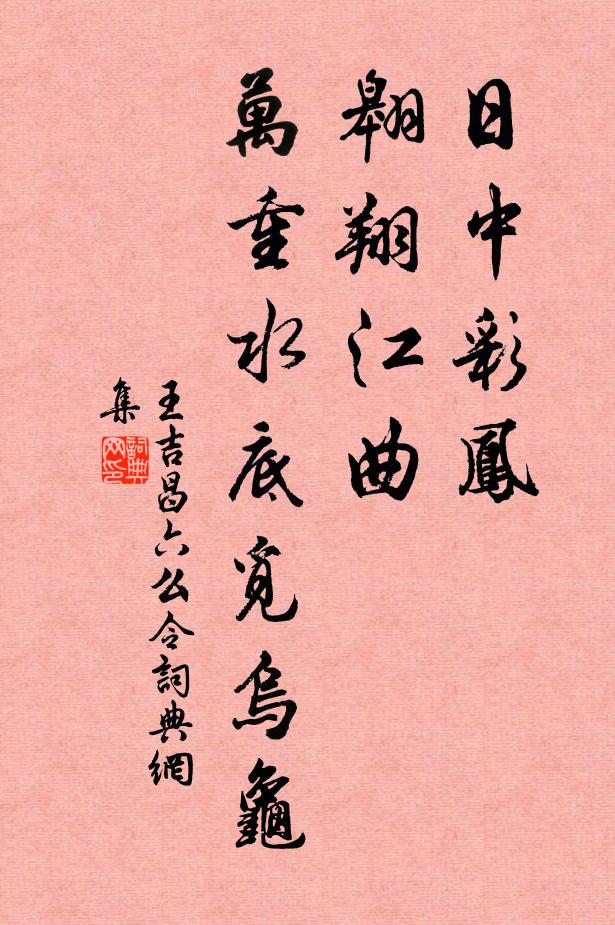 日中彩鳳
翱翔江曲
萬重水底覓烏龜
王吉昌六么令詞典網
集
詞典
网印